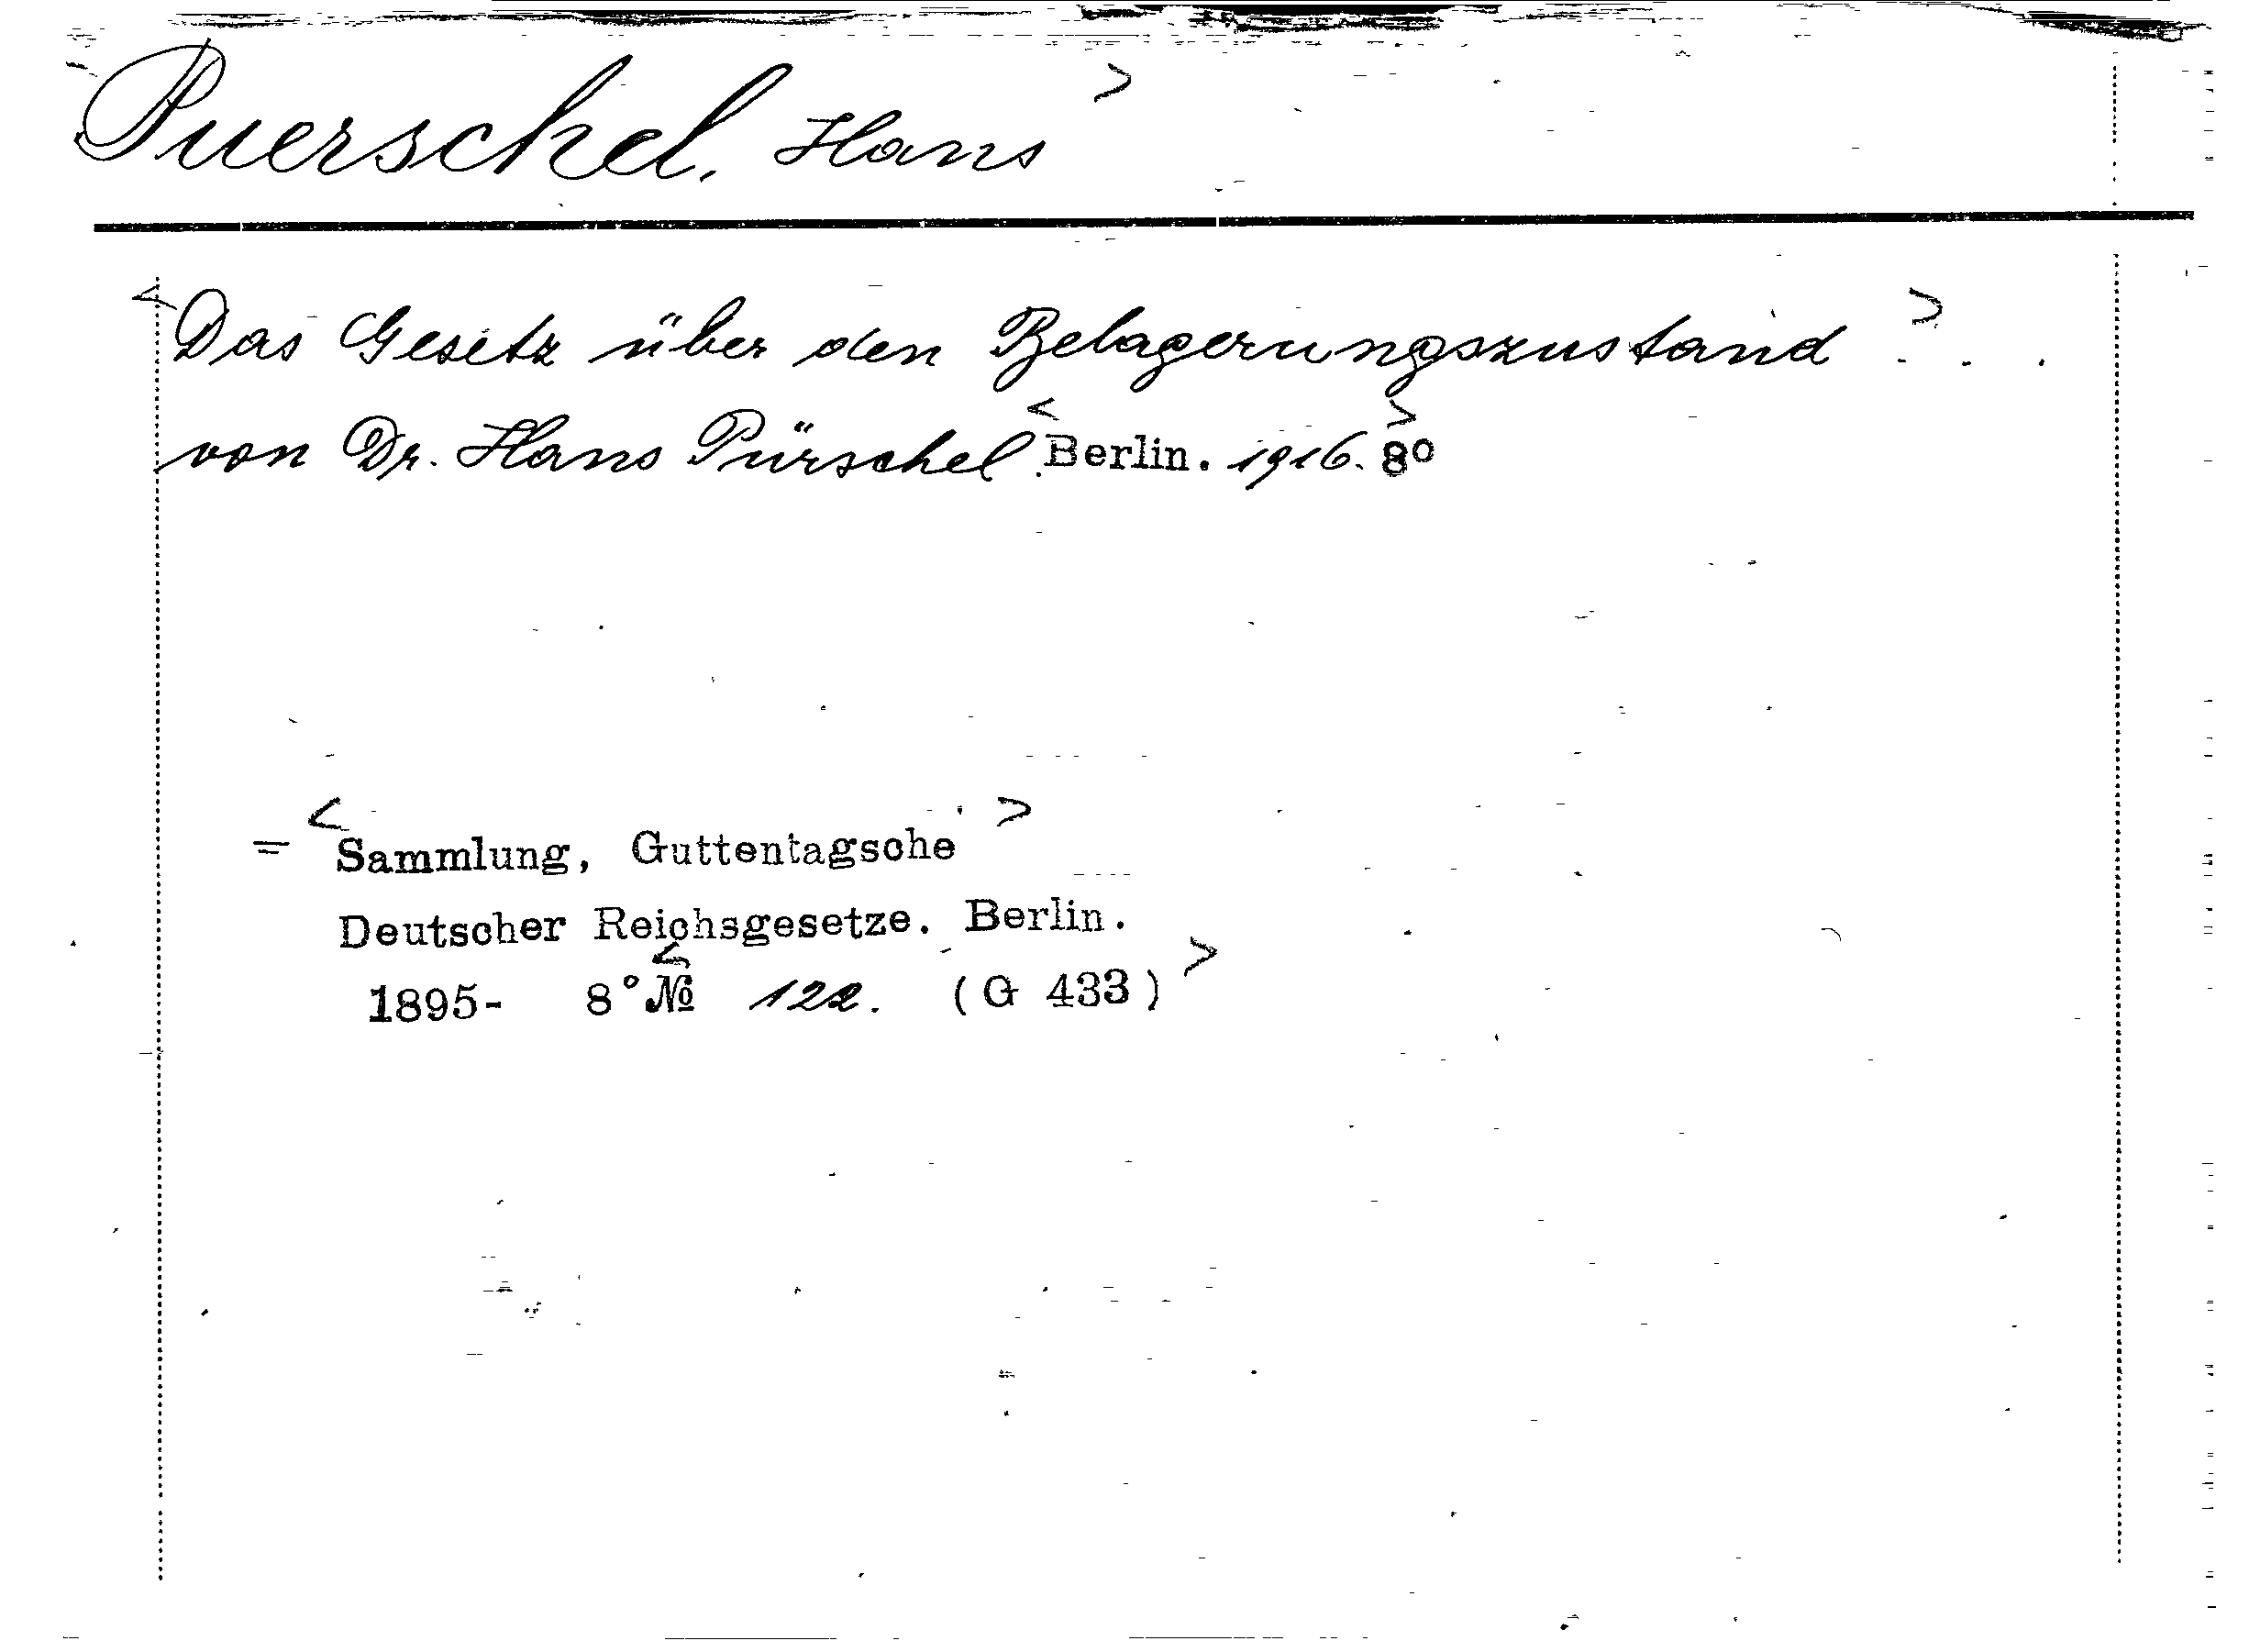 Puerschel, Hans >
< Das Gesetz über den Belagerungszustand > . . .
von Dr. Hans Pürschel. < Berlin. 1916. > 8°
= < Sammlung, Guttentagsche >
Deutscher Reichsgesetze. Berlin.
1895- 8° < № 122. (G 433) >